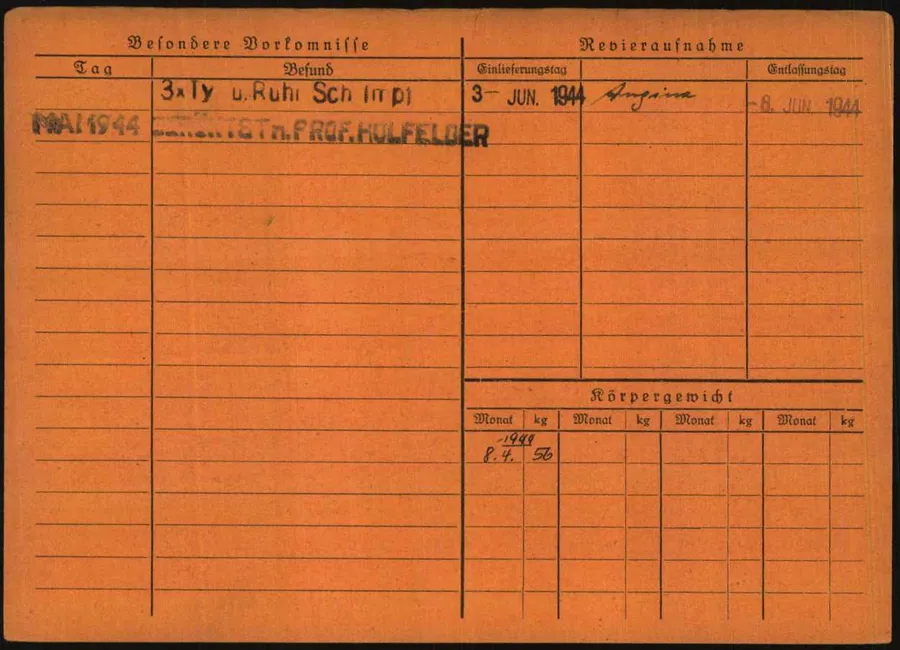 Besondere Vorkomnisse
Tag Befund
3xTy u. Ruhr Sch Impf
MAI 1944 n. PROF. HOLFELDER
Revieraufnahme
Einlieferungstag Entlassungstag
3- JUN. 1944 Angina -8. JUN. 1944
Körpergewicht
Monat kg Monat kg Monat kg Monat kg
1944
8.4. 56